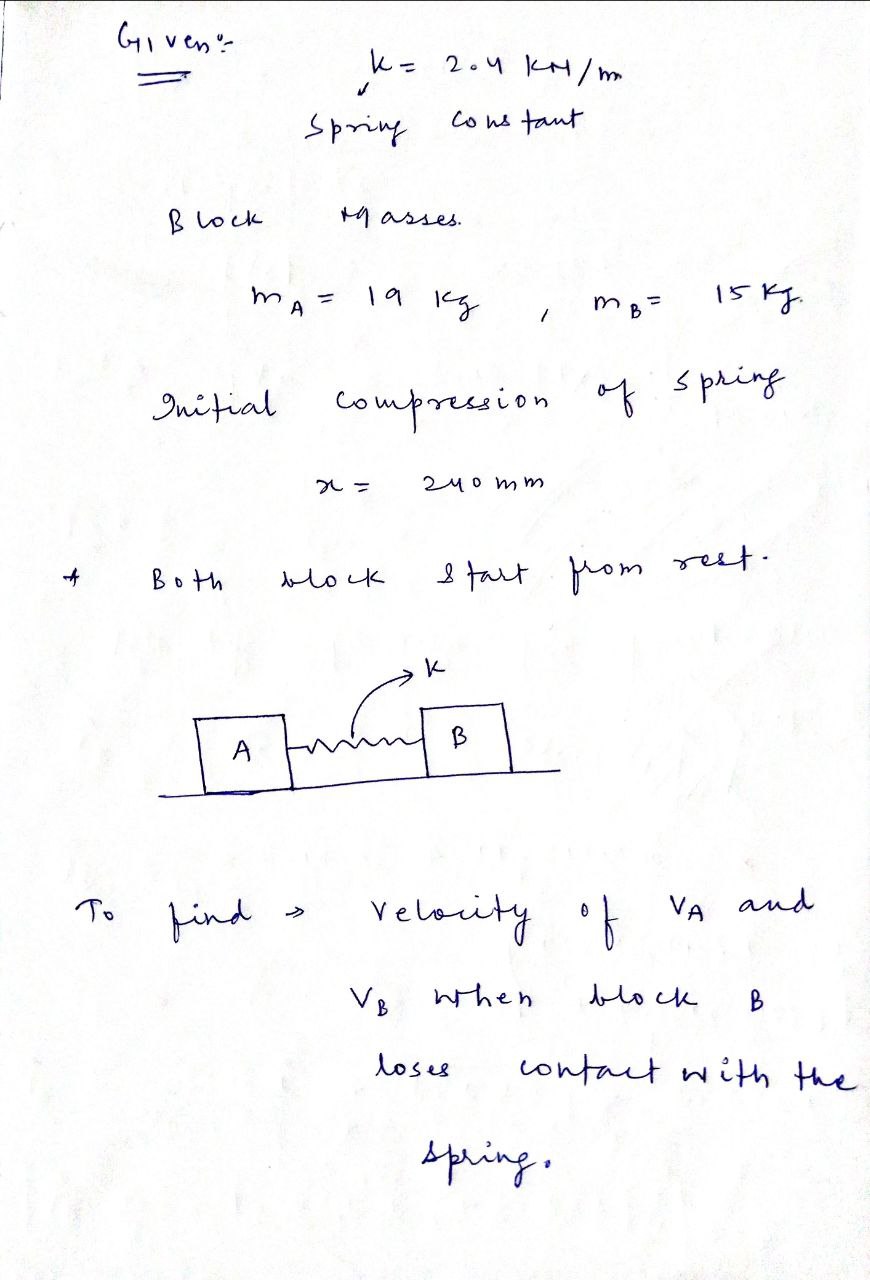 Given:-
k = 2.4 KN/m
Spring constant
Block Masses.
mA = 19 kg , mB = 15 kg.
Initial compression of spring
x = 240 mm
* Both block start from rest.
K
A B
To find → velocity of VA and
VB when block B
loses contact with the
spring.